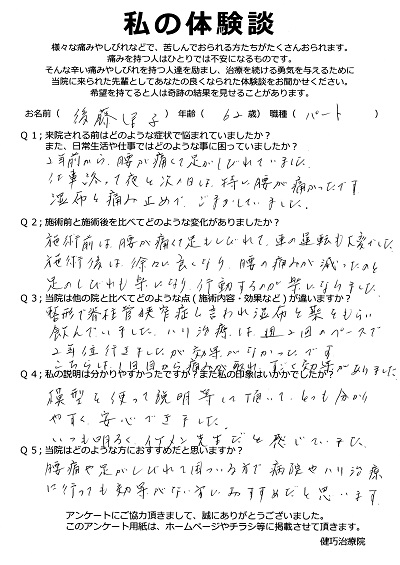 私の体験談
様々な痛みやしびれなどで、苦しんでおられる方たちがたくさんおられます。
痛みを持つ人はひとりでは不安になるものです。
そんな辛い痛みやしびれを持つ人達を励まし、治療を続ける勇気を与えるために
当院に来られた先輩としてあなたの良くなられた体験談をお聞かせください。
希望を持てると人は奇跡の結果を見せることがあります。
お名前（ 後藤 子 ） 年齢（ 62 歳） 職種（ パート ）
Q1；来院される前はどのような症状で悩まれていましたか？
また、日常生活や仕事ではどのような事に困っていましたか？
2年前から、腰が痛くて足がしびれていました。
仕事終って夜と次の日は、特に腰が痛かったです
湿布と痛み止めで、ごまかしていました。
Q2；施術前と施術後を比べてどのような変化がありましたか？
施術前は、腰が痛くて足もしびれて、車の運転も大変でした。
施術後は徐々に良くなり、腰の痛みが減ったのと
足のしびれも楽になり、行動するのが楽になりました。
Q3；当院は他の院と比べてどのような点（施術内容・効果など）が違いますか？
整形で脊柱管狭窄症と言われ湿布と薬をもらい
飲んでいました。ハリ治療は週2回のペースで
2年位行きましたが効果がなかったです
こちらは、1回目から痛みが取れ、すごく効果がありました。
Q4；私の説明は分かりやすかったですか？また私の印象はいかがでしたか？
模型を使って説明等して頂いて、とても分かり
やすく、安心できました。
いつも明るく、イケメン先生だと感じていました。
Q5；当院はどのような方におすすめだと思いますか？
腰痛や足がしびれて困っている方で病院やハリ治療
に行っても効果がない方におすすめだと思います。
アンケートにご協力頂きまして、誠にありがとうございました。
このアンケート用紙は、ホームページやチラシ等に掲載させて頂きます。
健巧治療院